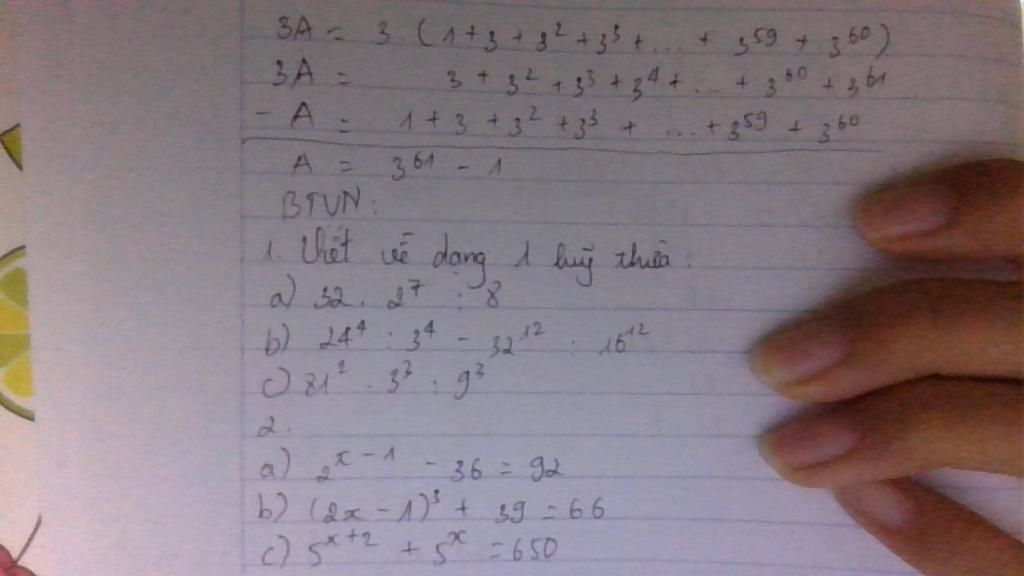 3A = 3 . (1 + 3 + 3² + 3³ + ... + 3⁵⁹ + 3⁶⁰)
3A = 3 + 3² + 3³ + 3⁴ + ... + 3⁶⁰ + 3⁶¹
- A = 1 + 3 + 3² + 3³ + ... + 3⁵⁹ + 3⁶⁰
A = 3⁶¹ - 1
BTVN:
1. Viết về dạng 1 luỹ thừa:
a) 32 . 2⁷ : 8
b) 24⁴ : 3⁴ - 32¹² : 16¹²
c) 81² . 3³ : 9³
2.
a) 2ˣ⁻¹ - 36 = 92
b) (2x - 1)³ + 39 = 66
c) 5ˣ⁺² + 5ˣ = 650